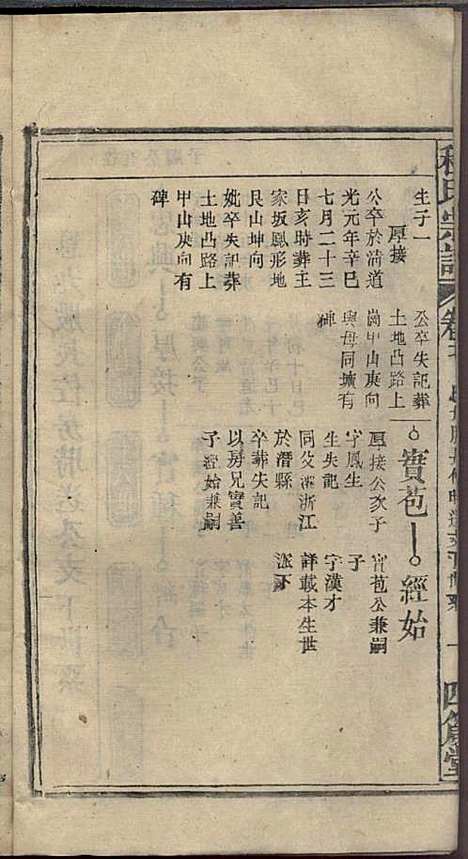 生子一
厚接
公卒於清道
光元年辛巳
七月二十三
日亥時葬王
家坂鳳形地
艮山坤向
妣卒失記葬
土地凸路上
甲山庚向有
碑
公卒失記葬
土地凸路上
崗甲山庚向
與母同壙有
碑
實苞
厚接公次子
字鳳生
生失記
同父遷浙江
於潛縣
卒葬失記
以房兄實善
子經始兼嗣
經始
實苞公兼嗣
子
字漢才
詳載本生世
派下
程氏宗譜
卷
四箴堂